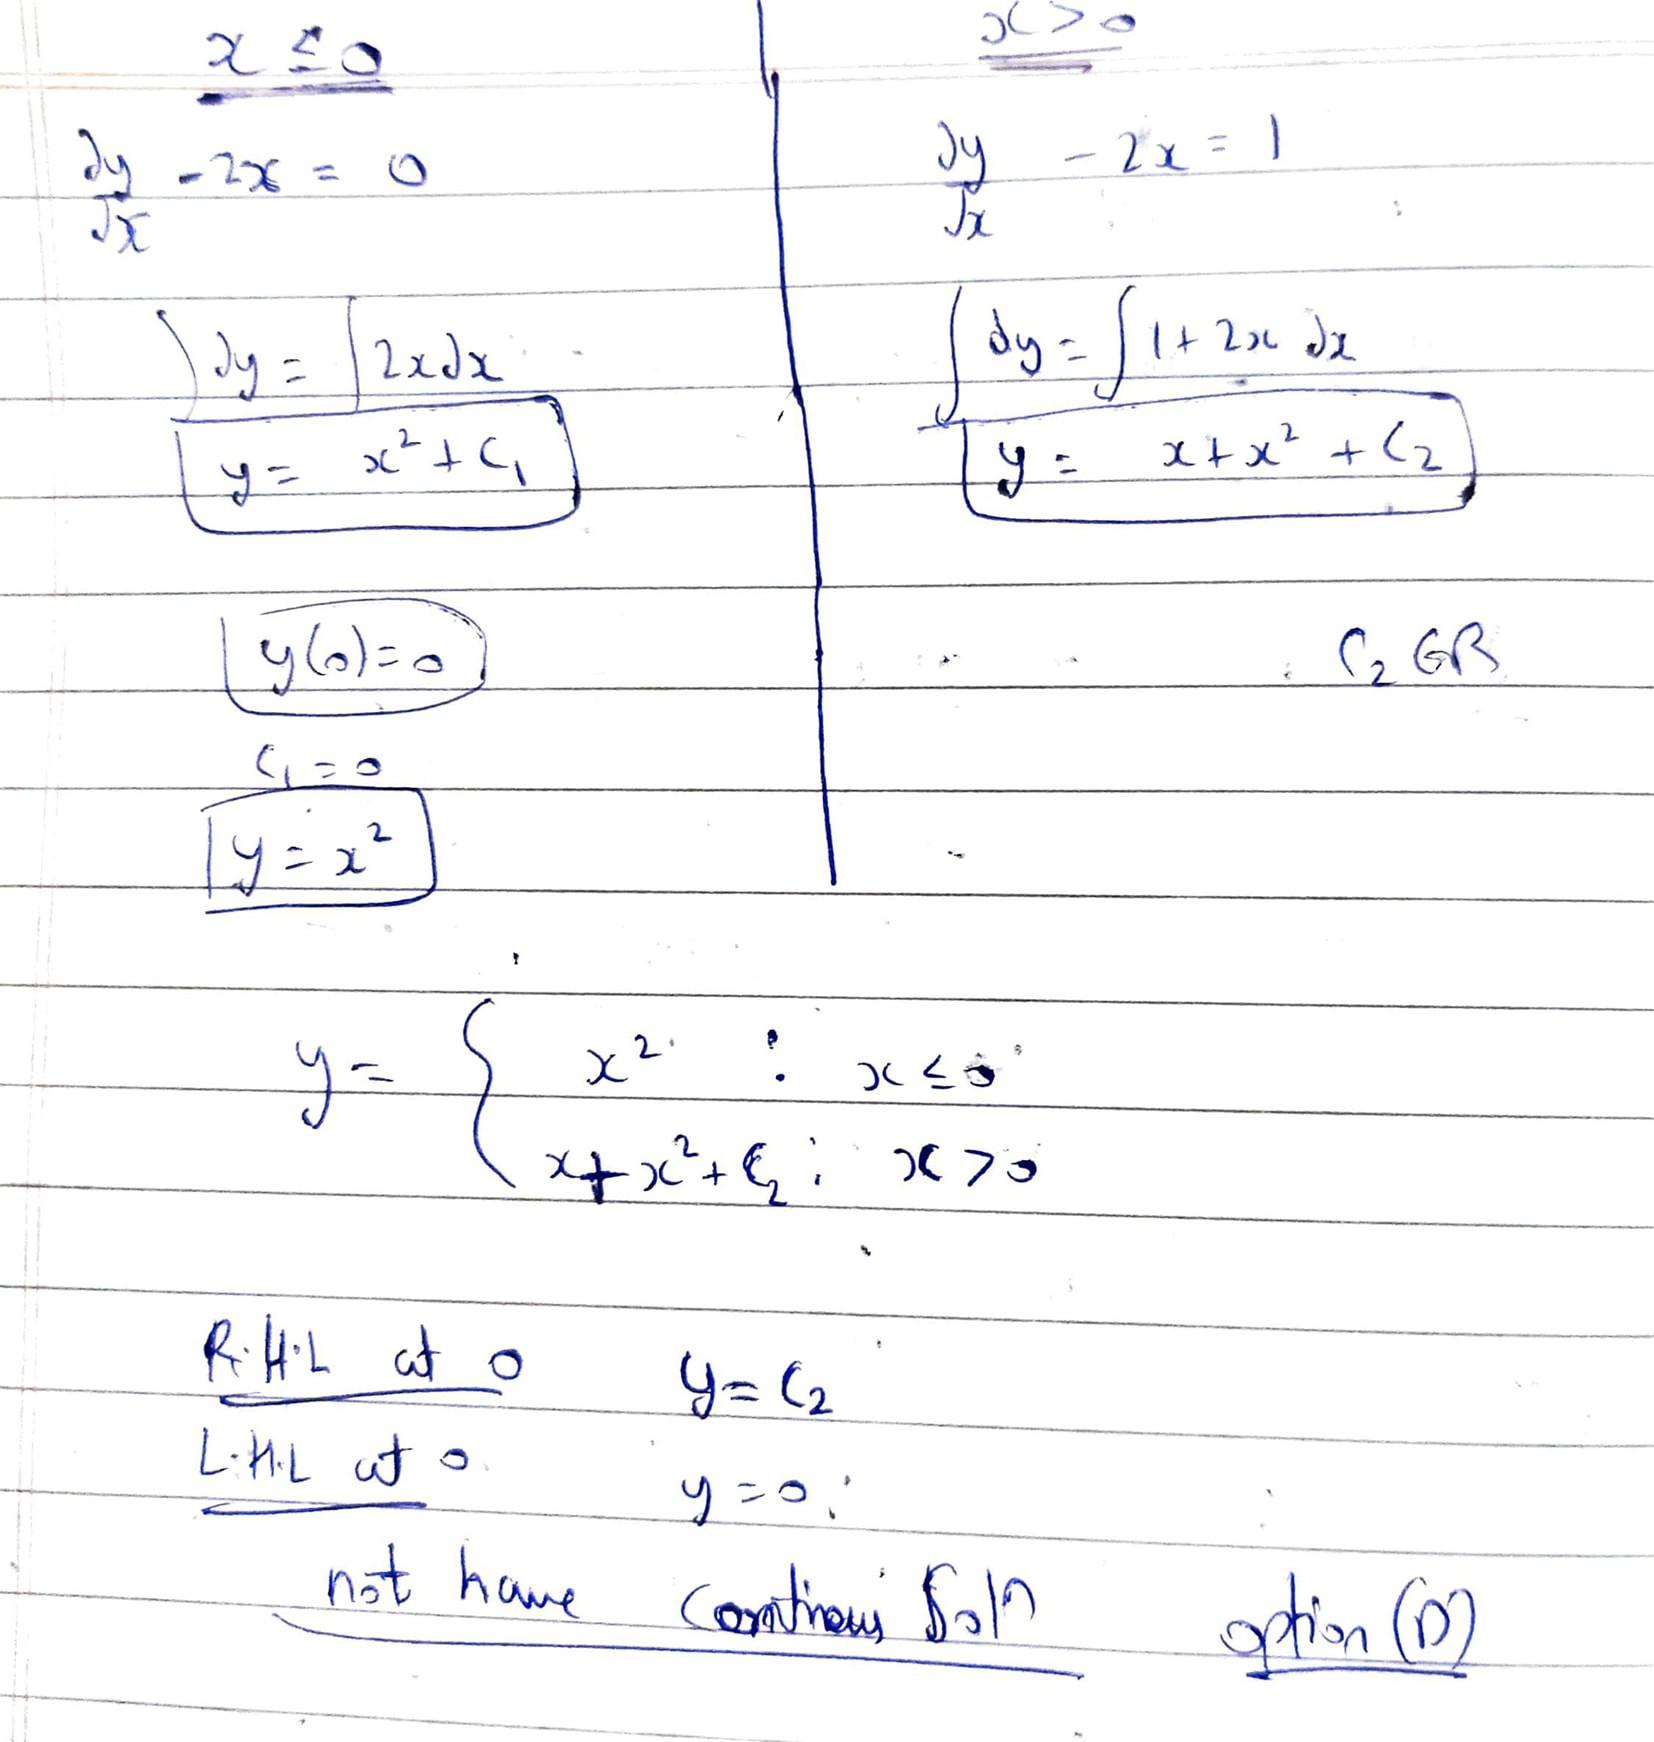 x ≤ 0
dy/dx - 2x = 0
∫dy = ∫2xdx
y = x² + C₁
y(0)=0
C₁ = 0
y = x²
x > 0
dy/dx - 2x = 1
∫dy = ∫1 + 2x dx
y = x + x² + C₂
C₂ ∈ R
y = { x² : x ≤ 0
x + x² + C₂ : x > 0
R.H.L at 0 y = C₂
L.H.L at 0 y = 0
not have continous Solⁿ option (D)